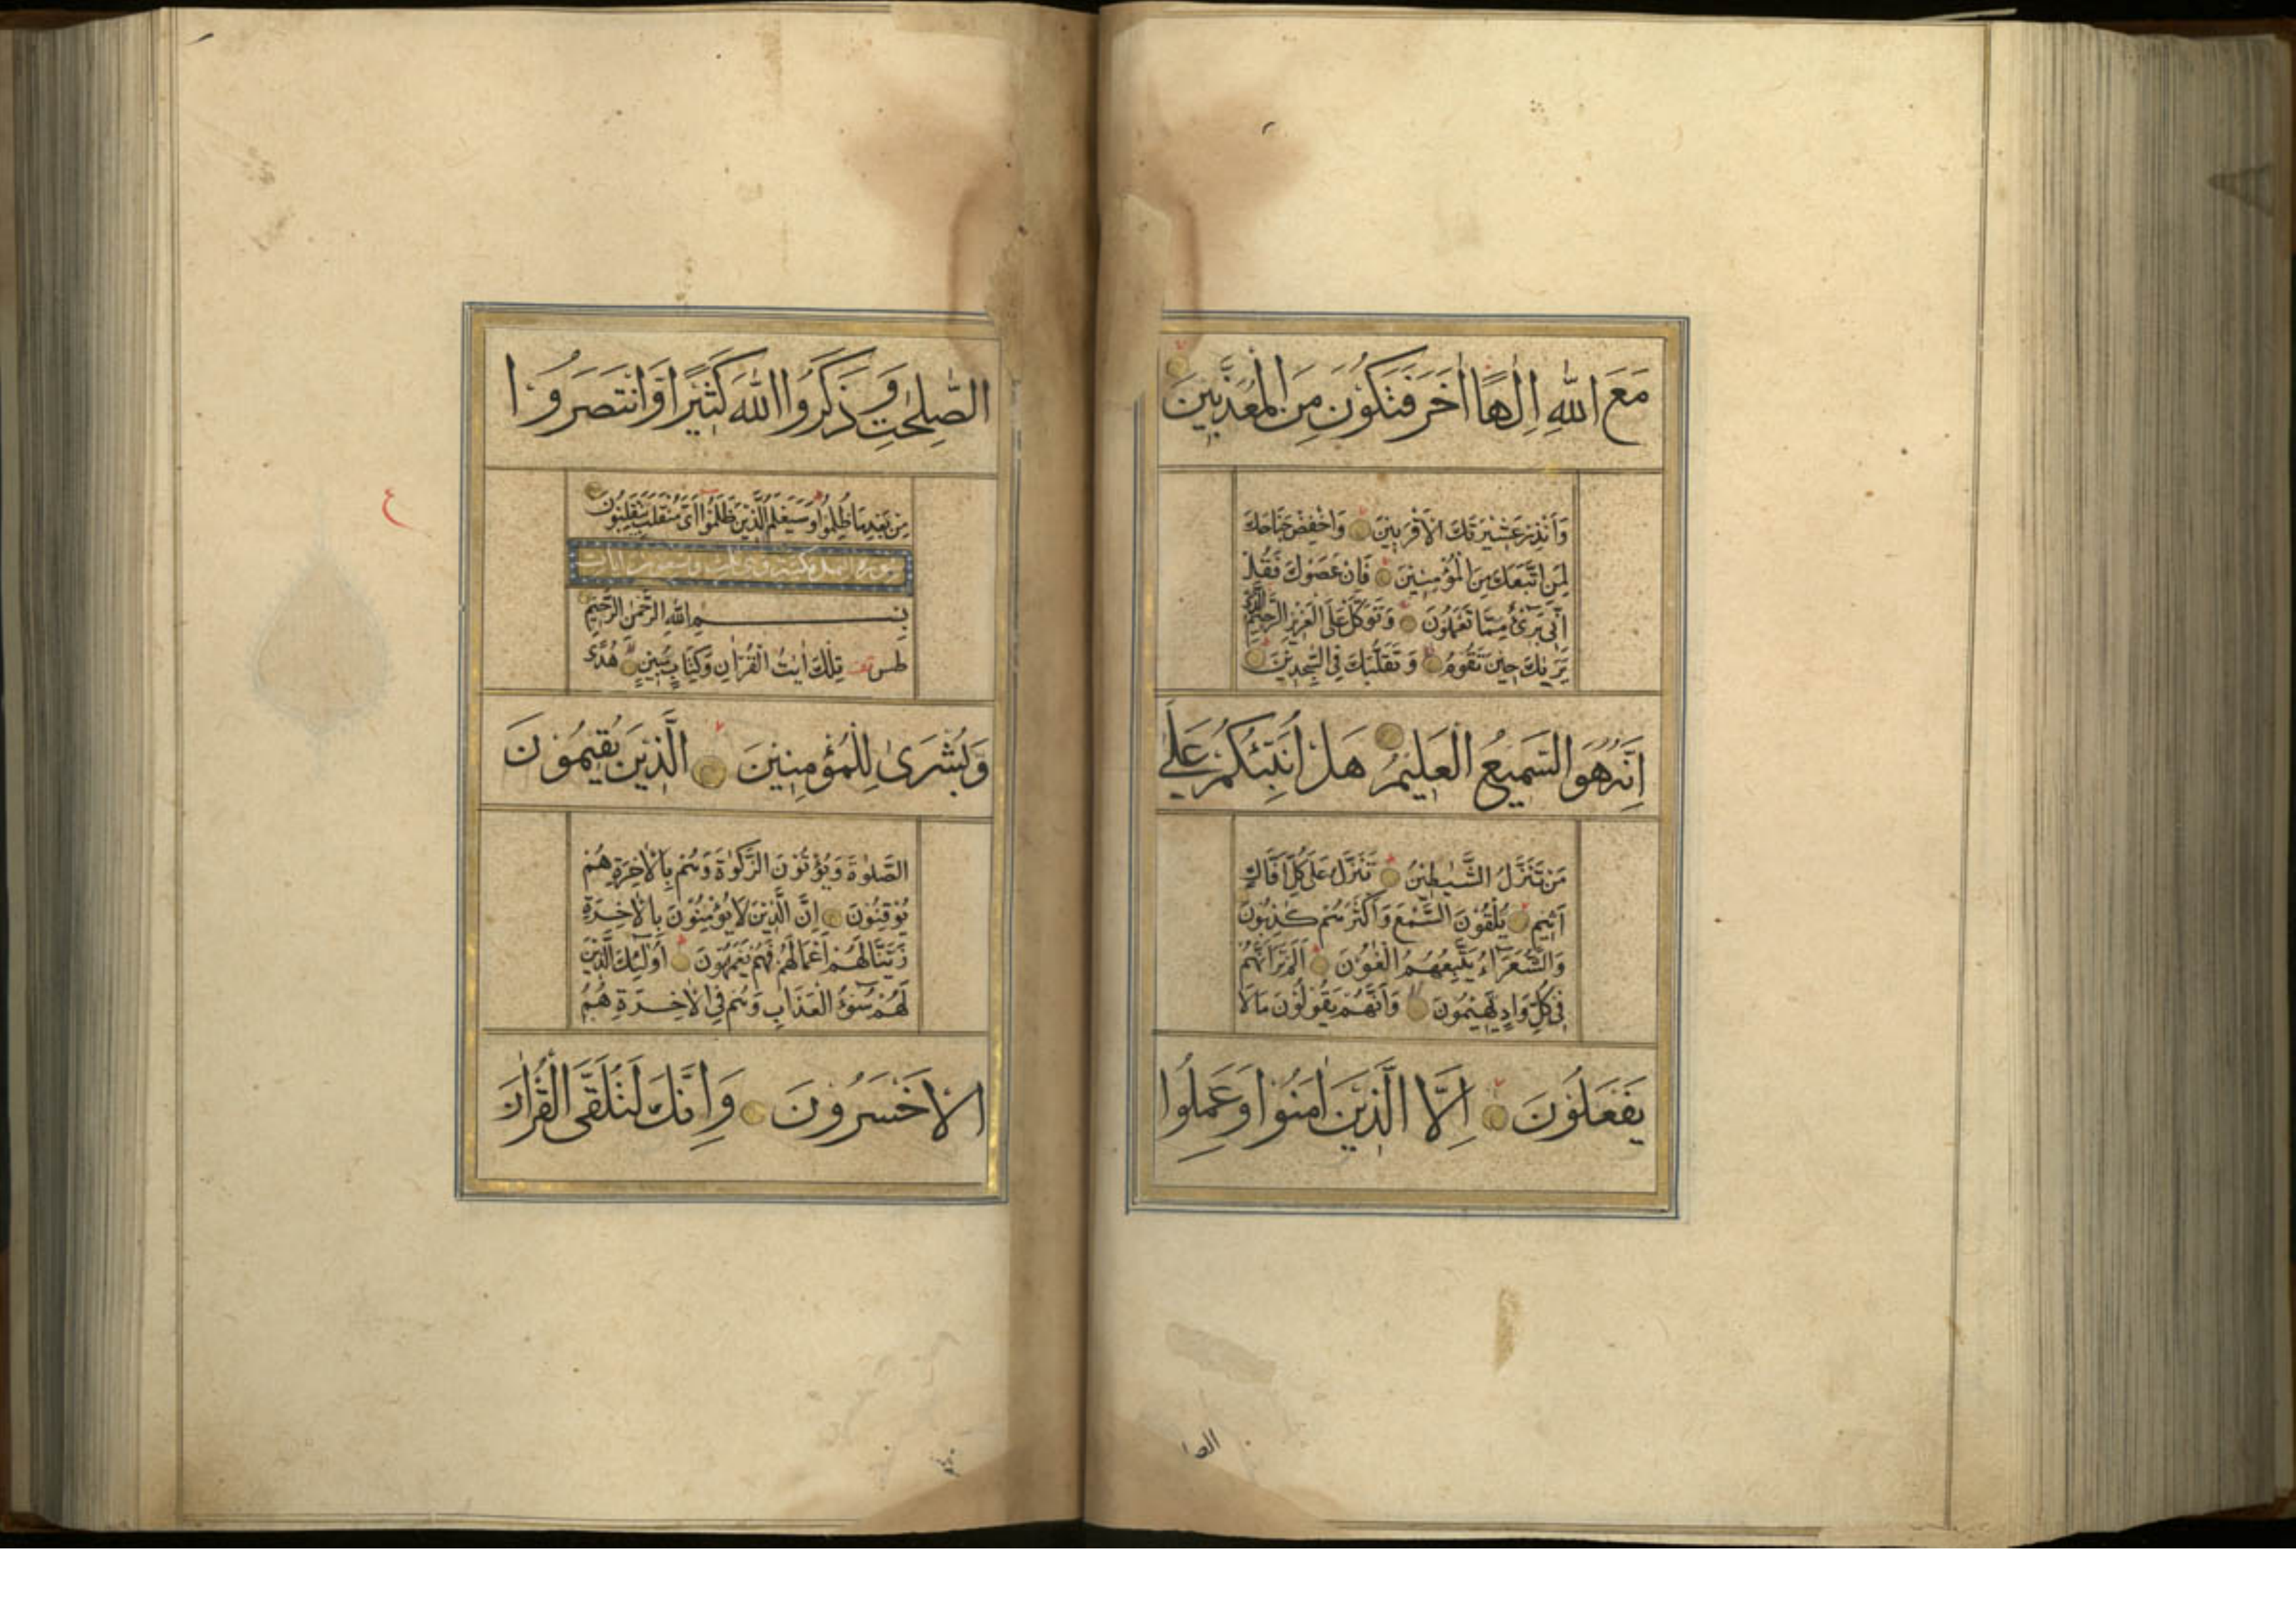 مَعَ اللهِ اِلٰهًا اٰخَرَ فَتَكُوْنَ مِنَ الْمُعَذَّبِيْنَ
وَاَنْذِرْ عَشِيْرَتَكَ الْاَقْرَبِيْنَ وَاخْفِضْ جَنَاحَكَ
لِمَنِ اتَّبَعَكَ مِنَ الْمُؤْمِنِيْنَ فَاِنْ عَصَوْكَ فَقُلْ
اِنِّى بَرِىْٓءٌ مِمَّا تَعْمَلُوْنَ وَتَوَكَّلْ عَلَى الْعَزِيْزِ الرَّحِيْمِ الَّذِىْ
يَرٰيكَ حِيْنَ تَقُوْمُ وَتَقَلُّبَكَ فِى السّٰجِدِيْنَ
اِنَّهُ هُوَ السَّمِيْعُ الْعَلِيْمُ هَلْ اُنَبِّئُكُمْ عَلٰى
مَنْ تَنَزَّلُ الشَّيٰطِيْنُ تَنَزَّلُ عَلٰى كُلِّ اَفَّاكٍ
اَثِيْمٍ يُلْقُوْنَ السَّمْعَ وَاَكْثَرُهُمْ كٰذِبُوْنَ
وَالشُّعَرَآءُ يَتَّبِعُهُمُ الْغَاوٗنَ اَلَمْ تَرَ اَنَّهُمْ
فِىْ كُلِّ وَادٍ يَهِيْمُوْنَ وَاَنَّهُمْ يَقُوْلُوْنَ مَا لَا
يَفْعَلُوْنَ اِلَّا الَّذِيْنَ اٰمَنُوْا وَعَمِلُوا
الصا
الصّٰلِحٰتِ وَذَكَرُوا اللهَ كَثِيْرًا وَّانْتَصَرُوْا
مِنْ بَعْدِ مَا ظُلِمُوْا وَسَيَعْلَمُ الَّذِيْنَ ظَلَمُوْٓا اَىَّ مُنْقَلَبٍ يَّنْقَلِبُوْنَ
سورة النمل مكية وهى ثلث وتسعون آيات
بِسْمِ اللهِ الرَّحْمٰنِ الرَّحِيْمِ
طس تِلْكَ اٰيٰتُ الْقُرْاٰنِ وَكِتَابٍ مُّبِيْنٍ هُدًى
وَّبُشْرٰى لِلْمُؤْمِنِيْنَ الَّذِيْنَ يُقِيْمُوْنَ
الصَّلٰوةَ وَيُؤْتُوْنَ الزَّكٰوةَ وَهُمْ بِالْاٰخِرَةِ هُمْ
يُوْقِنُوْنَ اِنَّ الَّذِيْنَ لَا يُؤْمِنُوْنَ بِالْاٰخِرَةِ
زَيَّنَّا لَهُمْ اَعْمَالَهُمْ فَهُمْ يَعْمَهُوْنَ اُولٰٓئِكَ الَّذِيْنَ
لَهُمْ سُوْٓءُ الْعَذَابِ وَهُمْ فِى الْاٰخِرَةِ هُمُ
الْاَخْسَرُوْنَ وَاِنَّكَ لَتُلَقَّى الْقُرْاٰنَ
ع